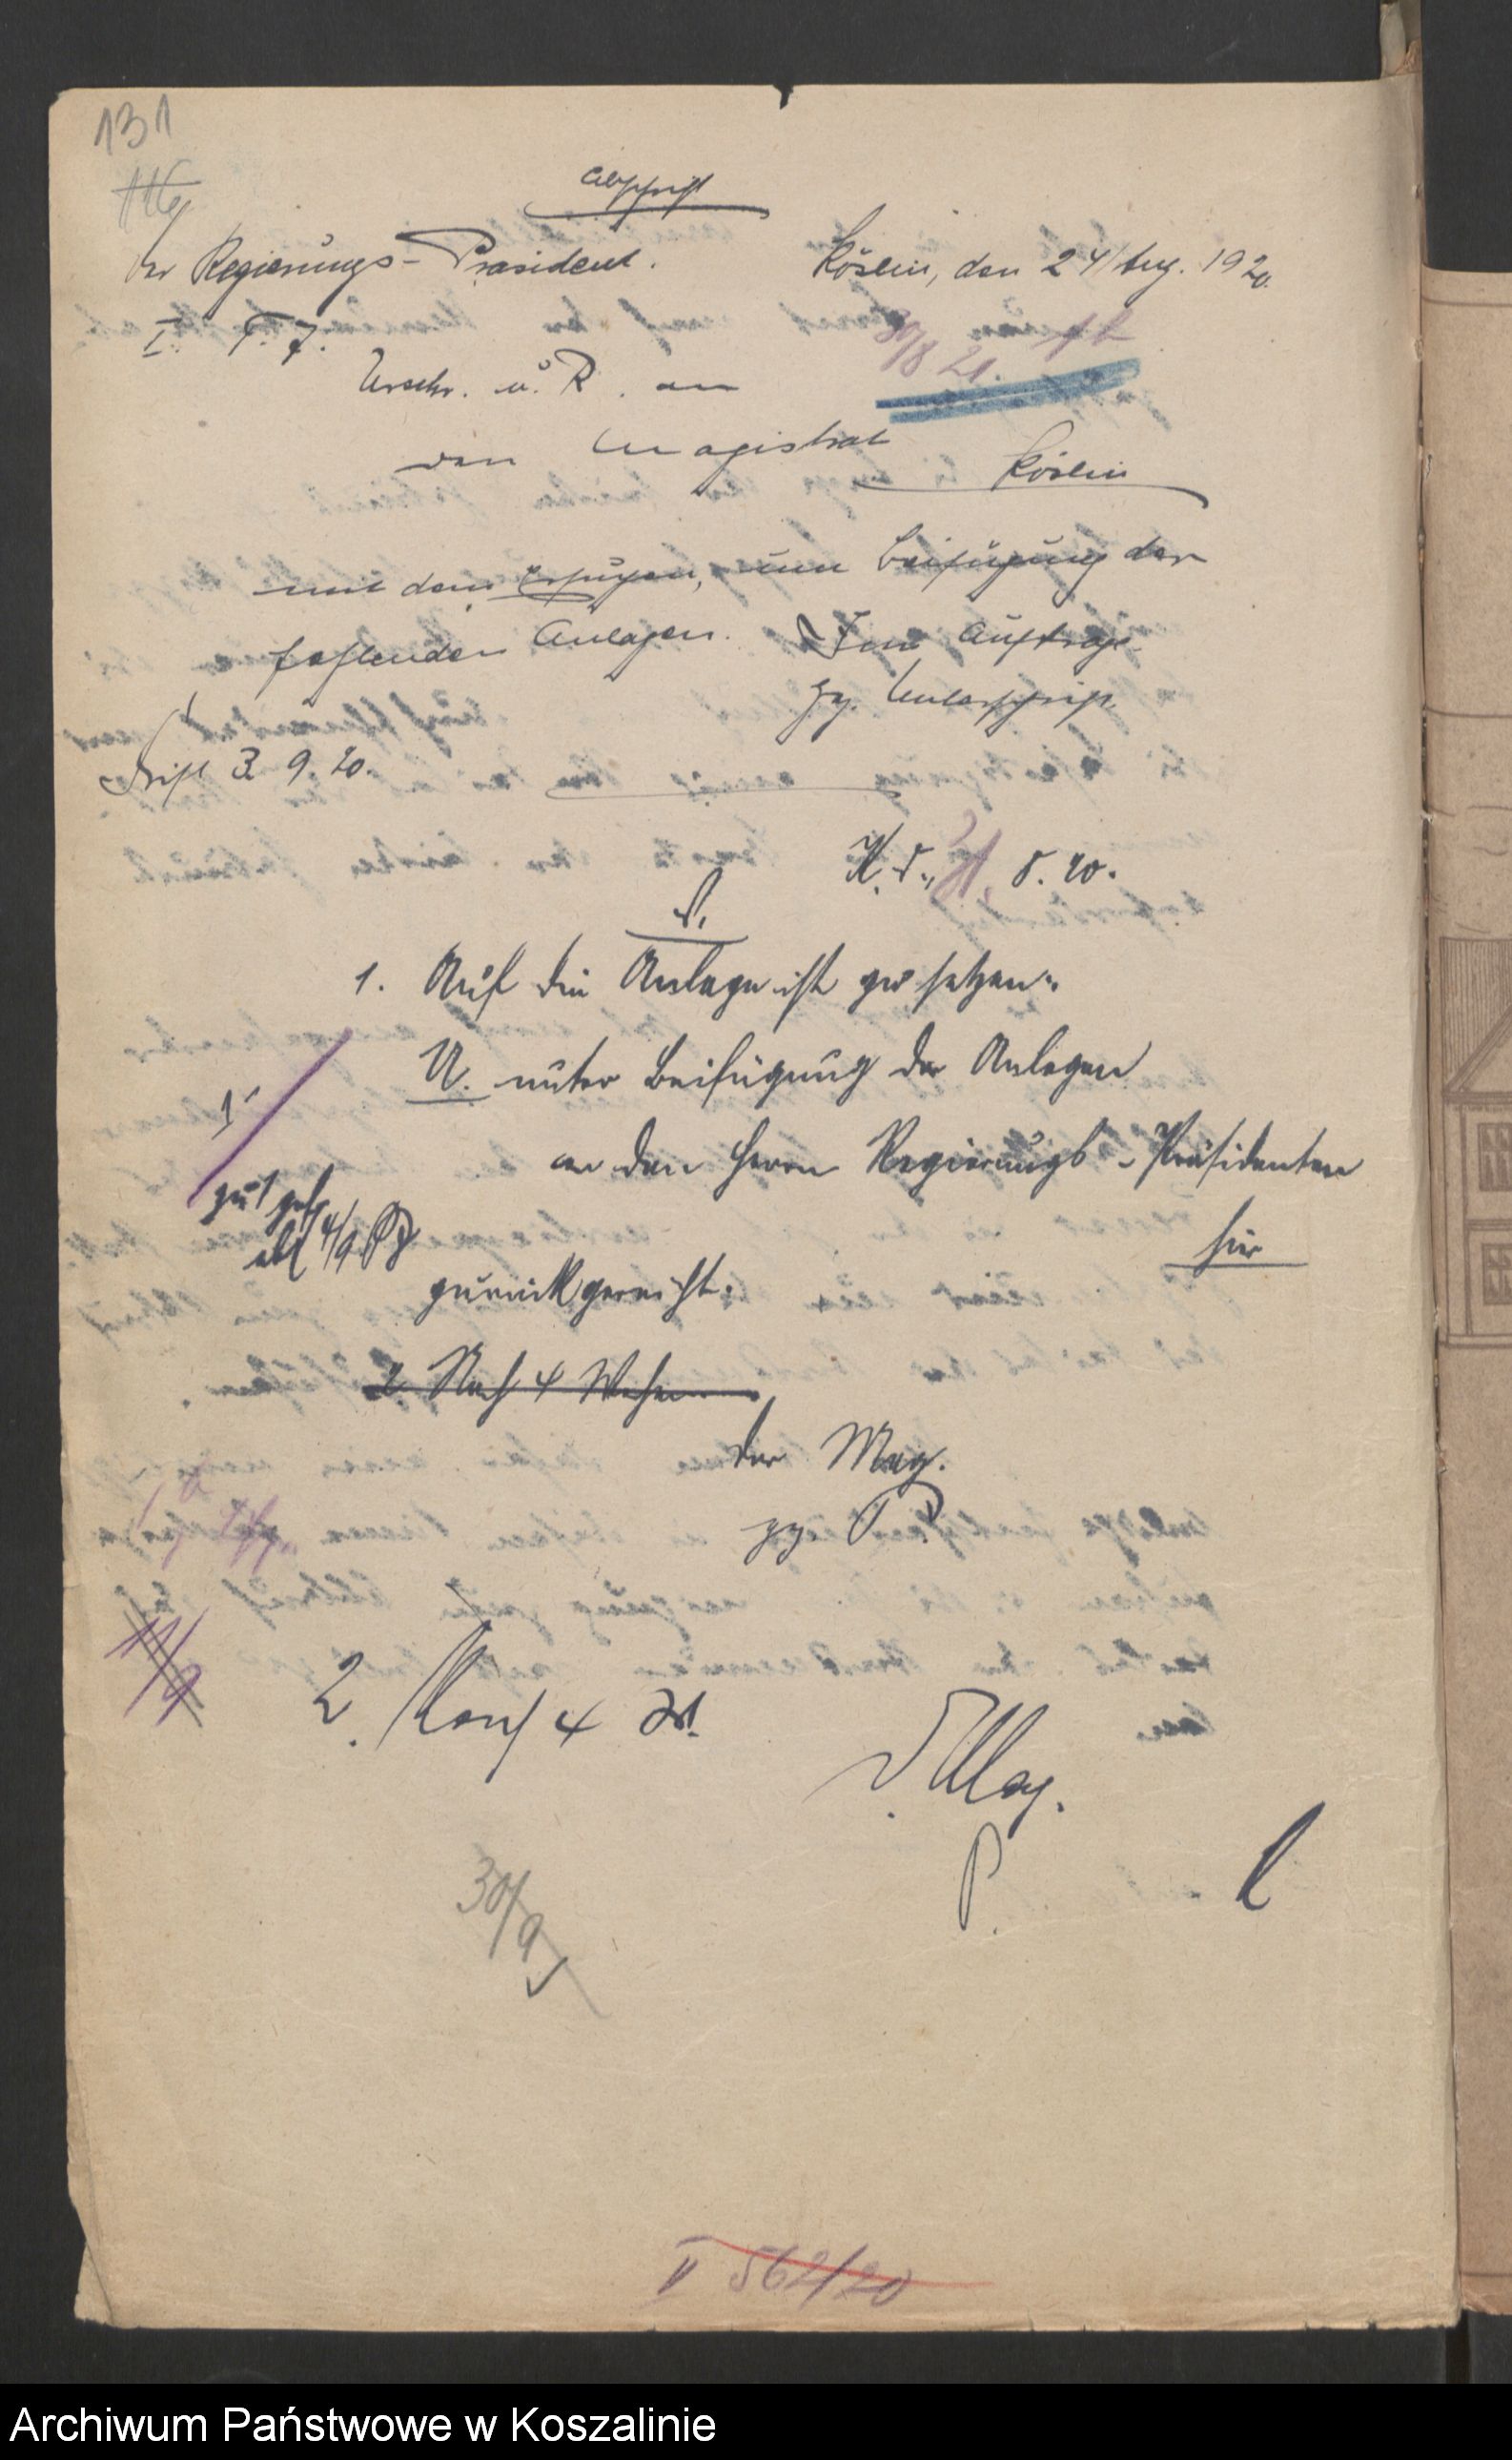 131
Abschrift
Der Regierungs-Präsident.
Köslin, den 24/Aug. 1920.
I. F. 7.
30/8 21.
Urschr. u. R. an
den Magistrat
Köslin
mit dem Ersuchen, um Beifügung der
fehlenden Anlagen.
Im Auftrage
gz. Unterschrift.
Frist 3. 9. 20.
K. d. 31. 8. 20.
V.
1. Auf die Anlage ist zu setzen:
U. unter Beifügung der Anlagen
an den Herrn Regierungs-Präsidenten
hier
zurückgereicht.
2 Nach 4 Wochen
Der Mag.
gz. P.
1/9
2. Nach 4 W.
D. Mag.
P.
30/9
V 562/20
Archiwum Państwowe w Koszalinie